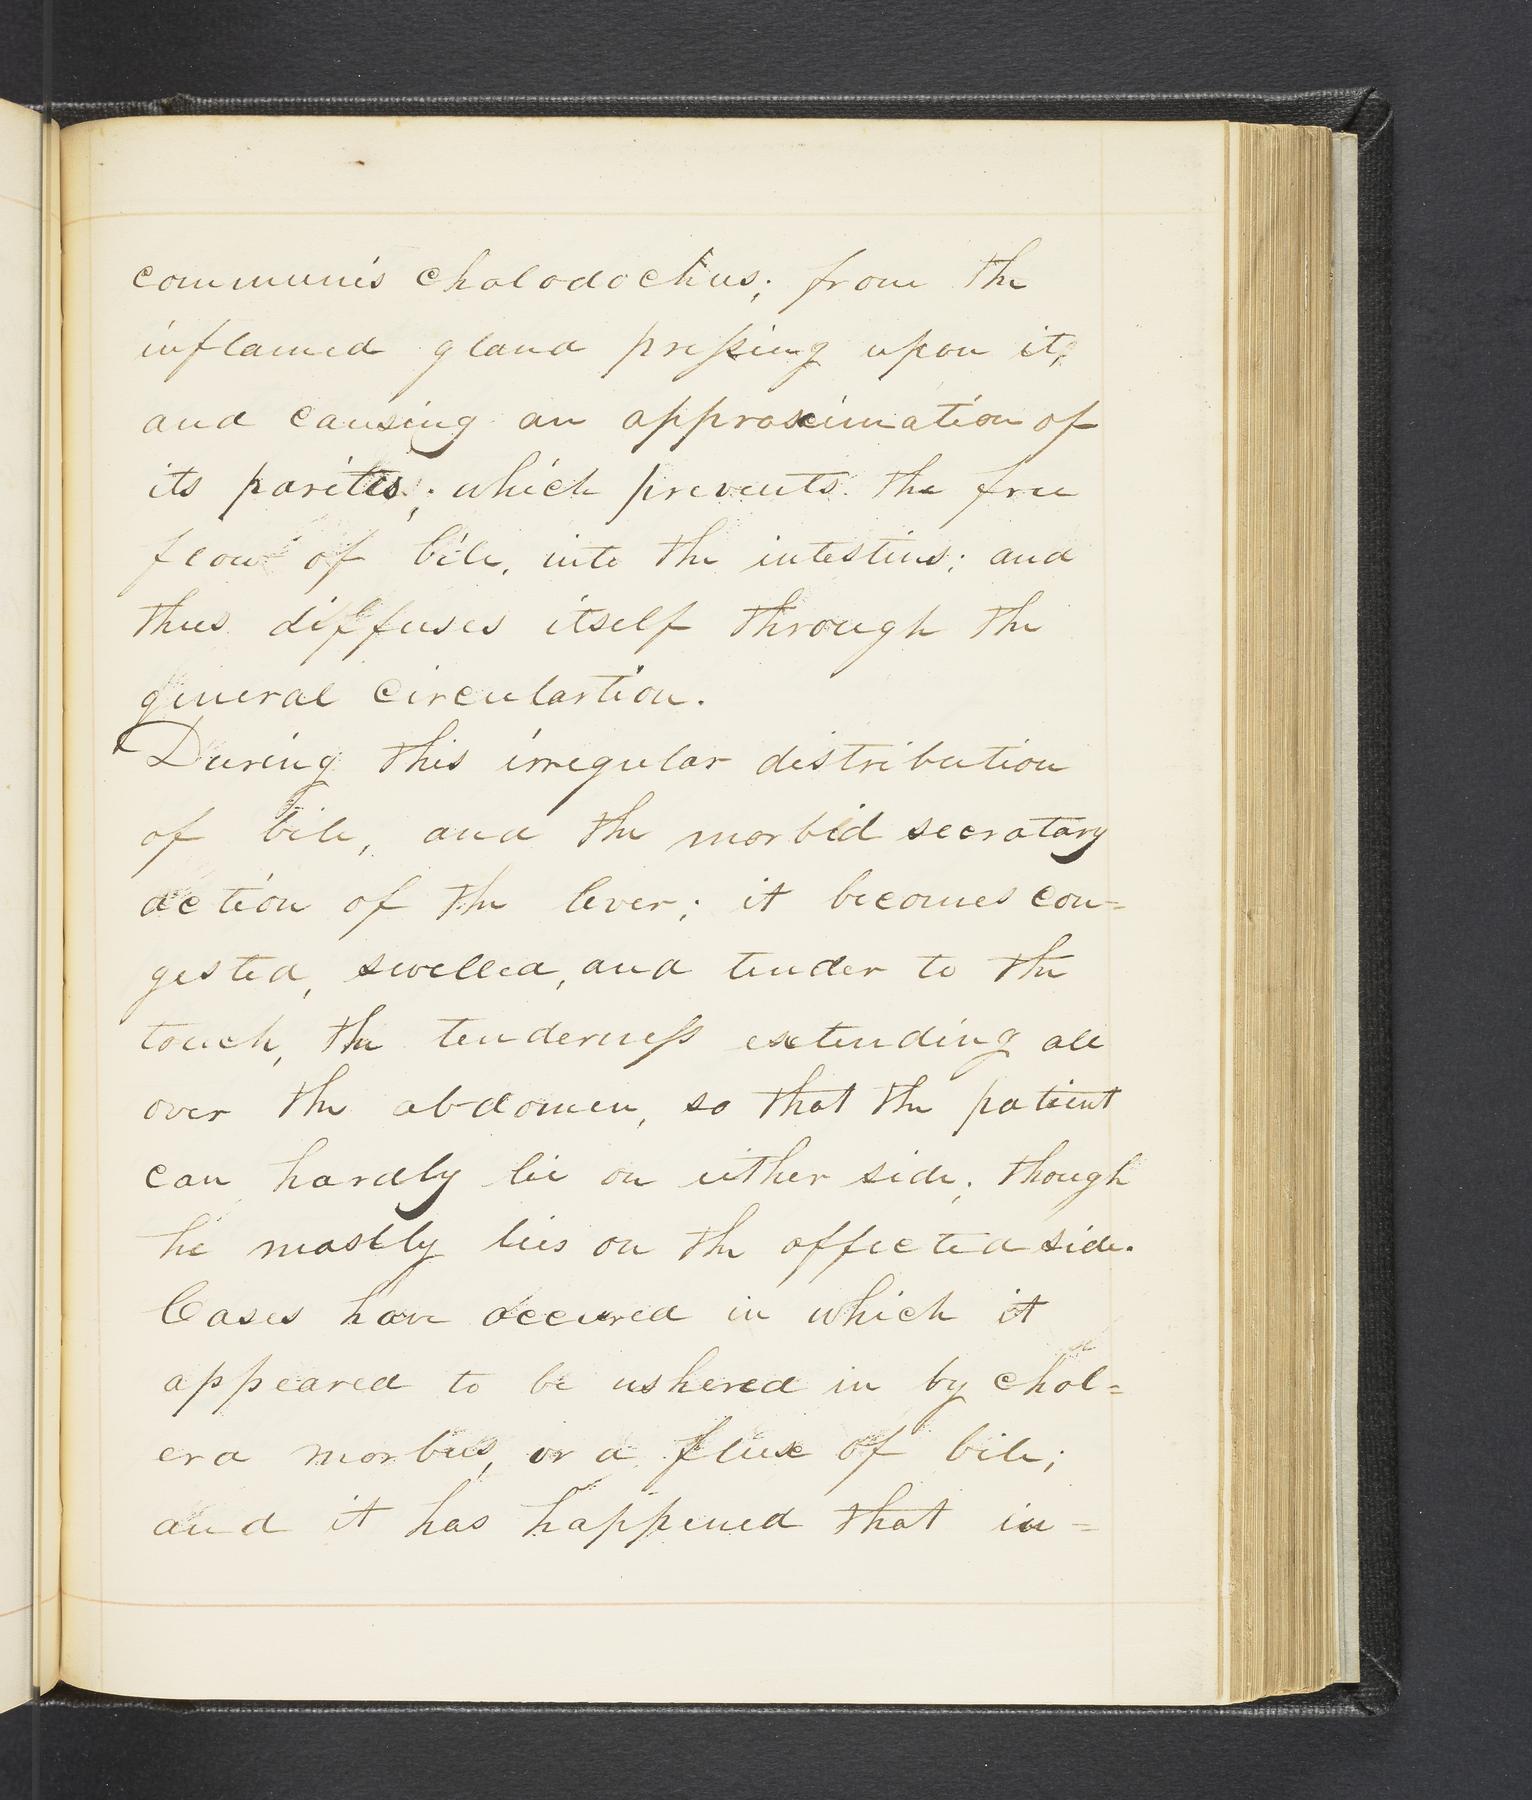 communis choledochus; from the
inflamed gland pressing upon it;
and causing an approximation of
its parites; which prevents the free
flow of bile, into the intestins; and
thus diffuses itself through the
general circulartion.
During this irregular distribution
of bile, and the morbid secratary
action of the liver; it becomes con-
gested, swelled, and tender to the
touch, the tenderness extending all
over the abdomen, so that the patient
can hardly lie on either side; though
he mostly lies on the affected side.
Cases have occured in which it
appeared to be ushered in by chol=
era morbus, or a flux of bile;
and it has happened that in=